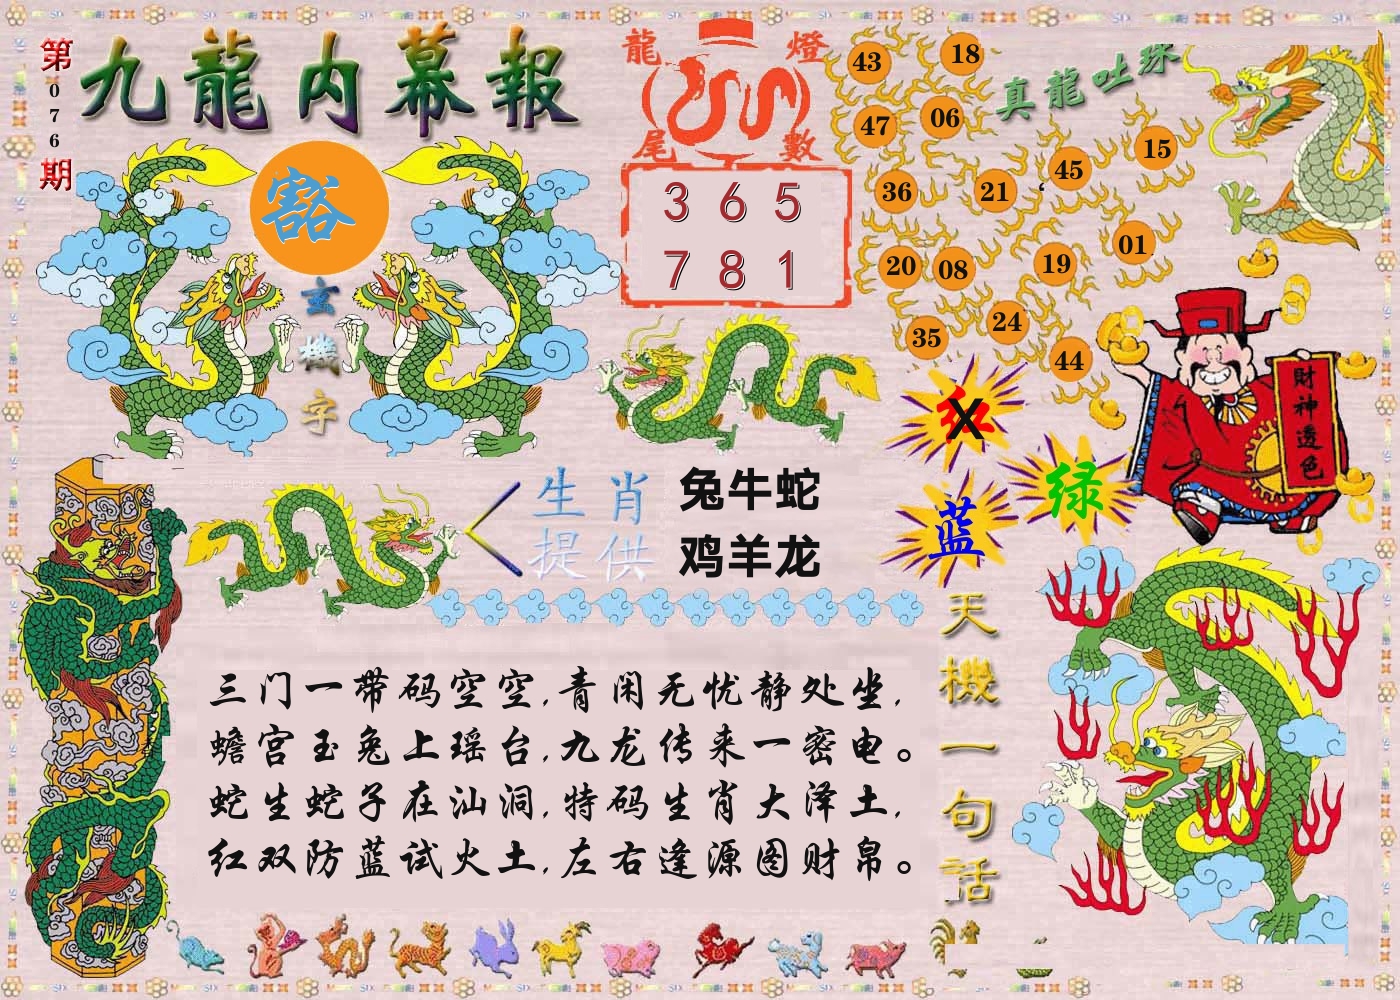 第076期
九龍内幕報
豁
玄機字
龍燈尾數
3 6 5
7 8 1
真龍吐珠
43 18
47 06
36 21 45 15
20 08 19 01
35 24 44
红 X
蓝
绿
財神透色
生肖提供
兔牛蛇
鸡羊龙
三门一带码空空,青闲无忧静处坐,
蟾宫玉兔上瑶台,九龙传来一密电。
蛇生蛇子在汕洞,特码生肖大泽土,
红双防蓝试火土,左右逢源图财帛。
天機一句話